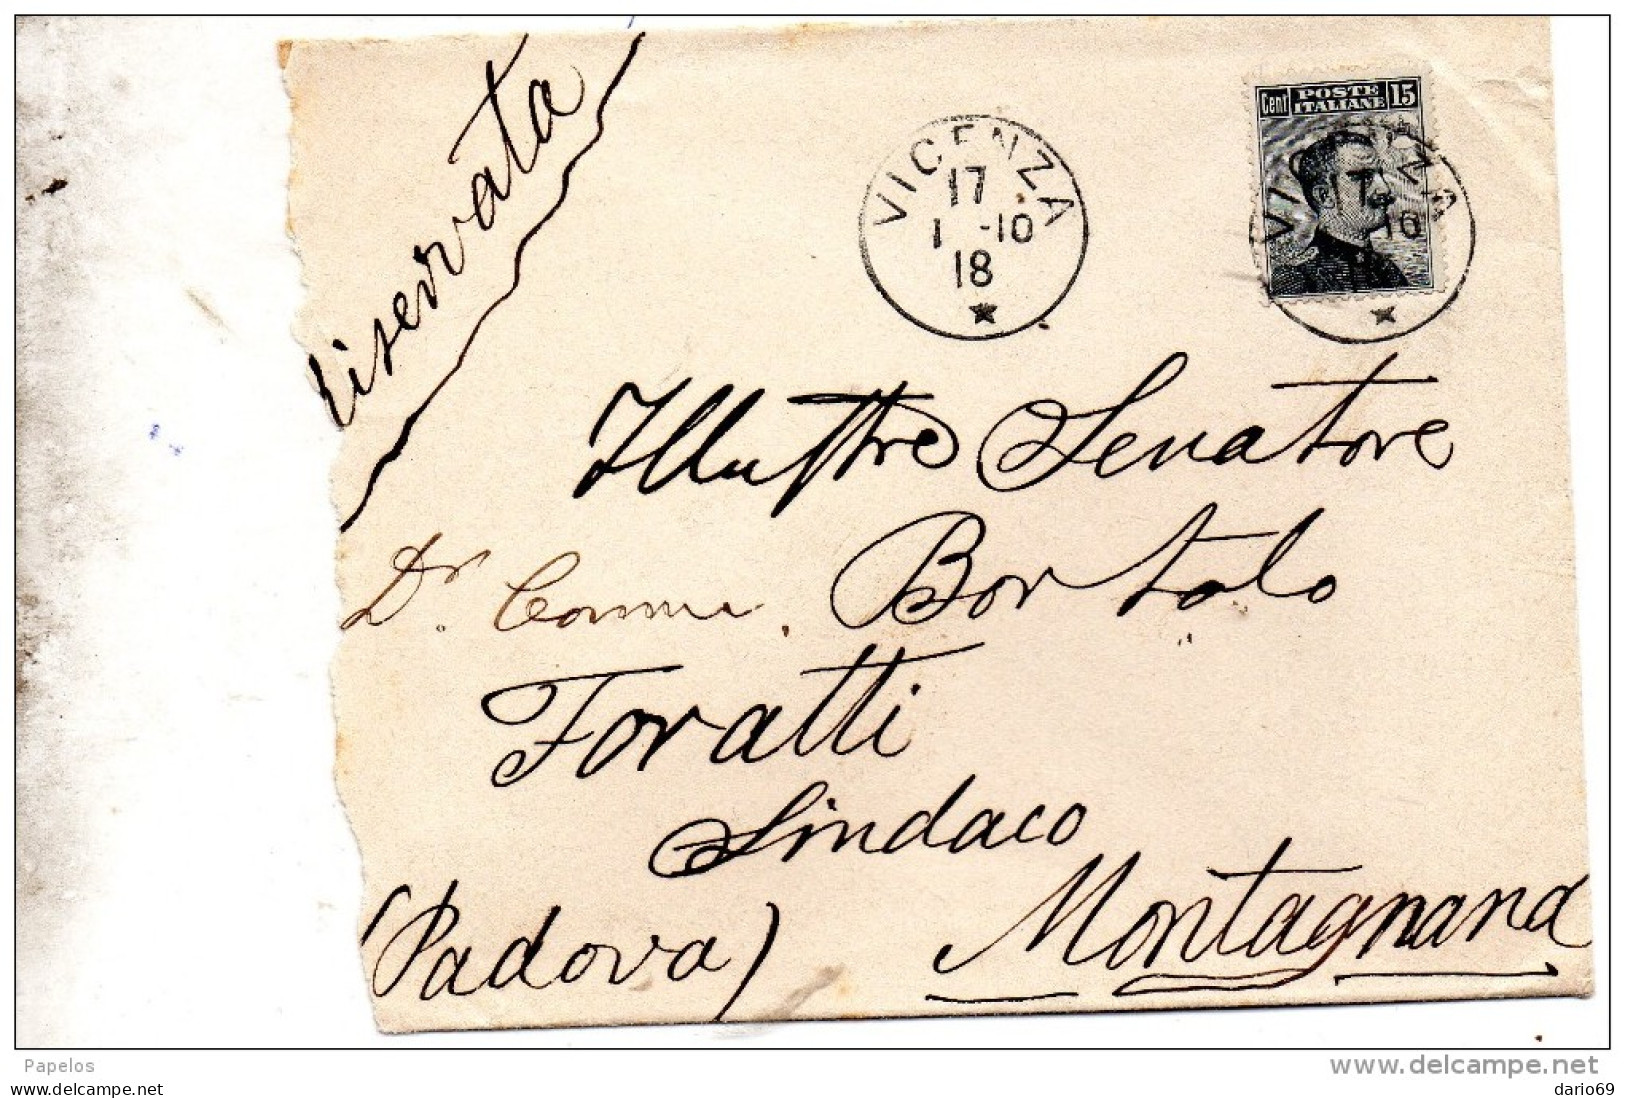 Riservata
VICENZA
17
1 -10
18
Cent POSTE ITALIANE 15
VICENZA
17
-10
Illustre Senatore
Dr. Comm. Bortolo
Foratti
Sindaco
(Padova) Montagnana
Papelos
www.delcampe.net
WWW.DELCAMPE.COM
dario69